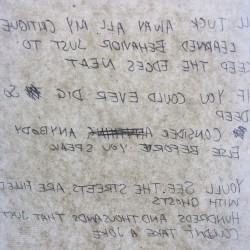 I'LL TUCK AWAY ALL MY CRITIQUE
LEARNED BEHAVIOR JUST TO
KEEP THE EDGES NEAT
IF YOU COULD EVER DIG SO
DEEP
CONSIDER ANYBODY
ELSE BEFORE YOU SPEAK
YOU'LL SEE THE STREETS ARE FILLED
WITH GHOSTS
HUNDREDS AND THOUSANDS THAT JUST
COULDN'T TAKE A JOKE